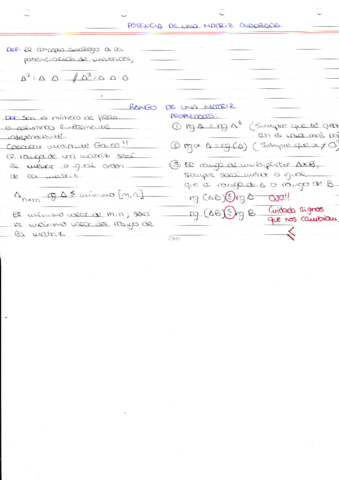 POTENCIA DE UNA MATRIZ CUADRADA
DEF: Es concepto análogo a la
potenciación de matrices,
A² = A·A / A³ = A·A·A
RANGO DE UNA MATRIZ
DEF: Son el número de filas
o columnas linealmente
independiente
Calcular mediante Gauss!!
El rango de una matriz será
el menor o igual orden
de la matriz.
A_{n×m} rg A ≤ mínimo [m,n]
El mínimo valor de m,n, será
el máximo valor del rango de
la matriz
PROPIEDADES:
① rg A = rg Aᵗ (Siempre que
② rg α·A = rg(A) (Siempre que α ≠ 0)
③ El rango de multiplicar A×B,
siempre será menor o igual
que el rango de A o rango de B
rg (AB) ≤ rg A Ojo!!
rg (AB) ≤ rg B Cuidado signos
que nos cambian,
<